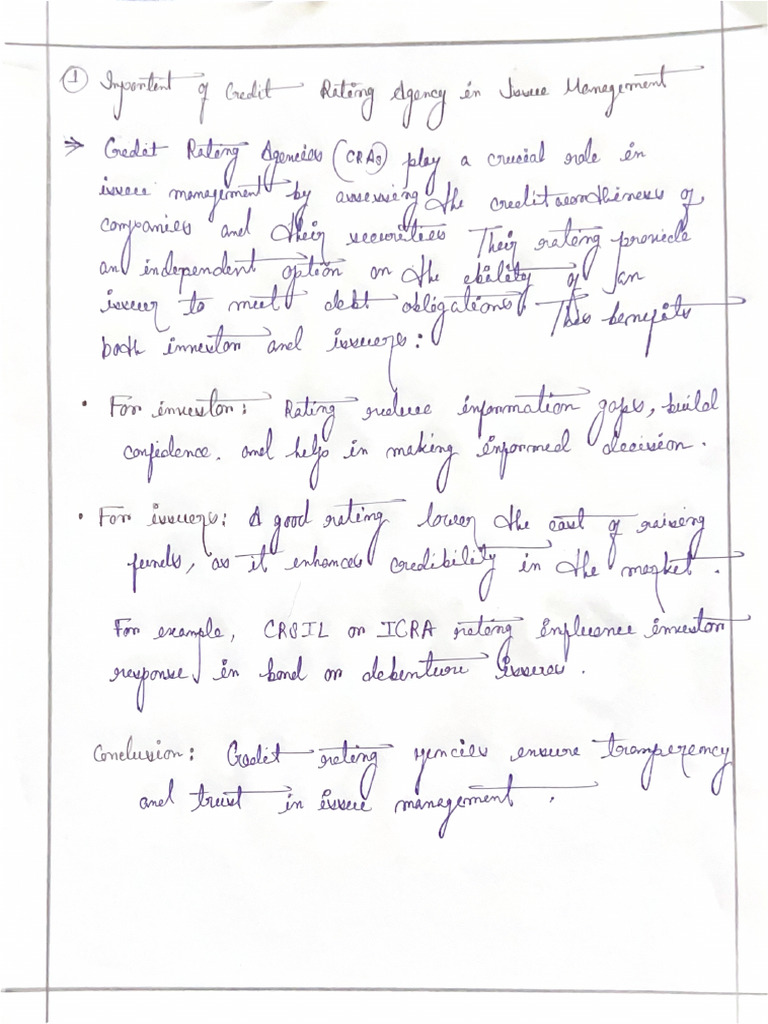 ① Inportent of Credit Rating Agency in Issue Management
⇒ Credit Rating Agencies (CRAs) play a crucial role in
issue management by assessing the creditworthiness of
companies and their securities Their rating provide
an independent option on the ebility of an
issuer to meet debt obligations. This benefits
both investor and issuers:
• For investor: Rating reduce information gaps, build
confidence. and help in making informed decision.
• For issuers: A good rating lower the cost of raising
funds, as it enhances credibility in the market.
For example, CRSIL or ICRA rating influence investor
response in bond or debenture issues.
Conclusion: Credit rating gencies ensure tranperency
and trust in issue management.